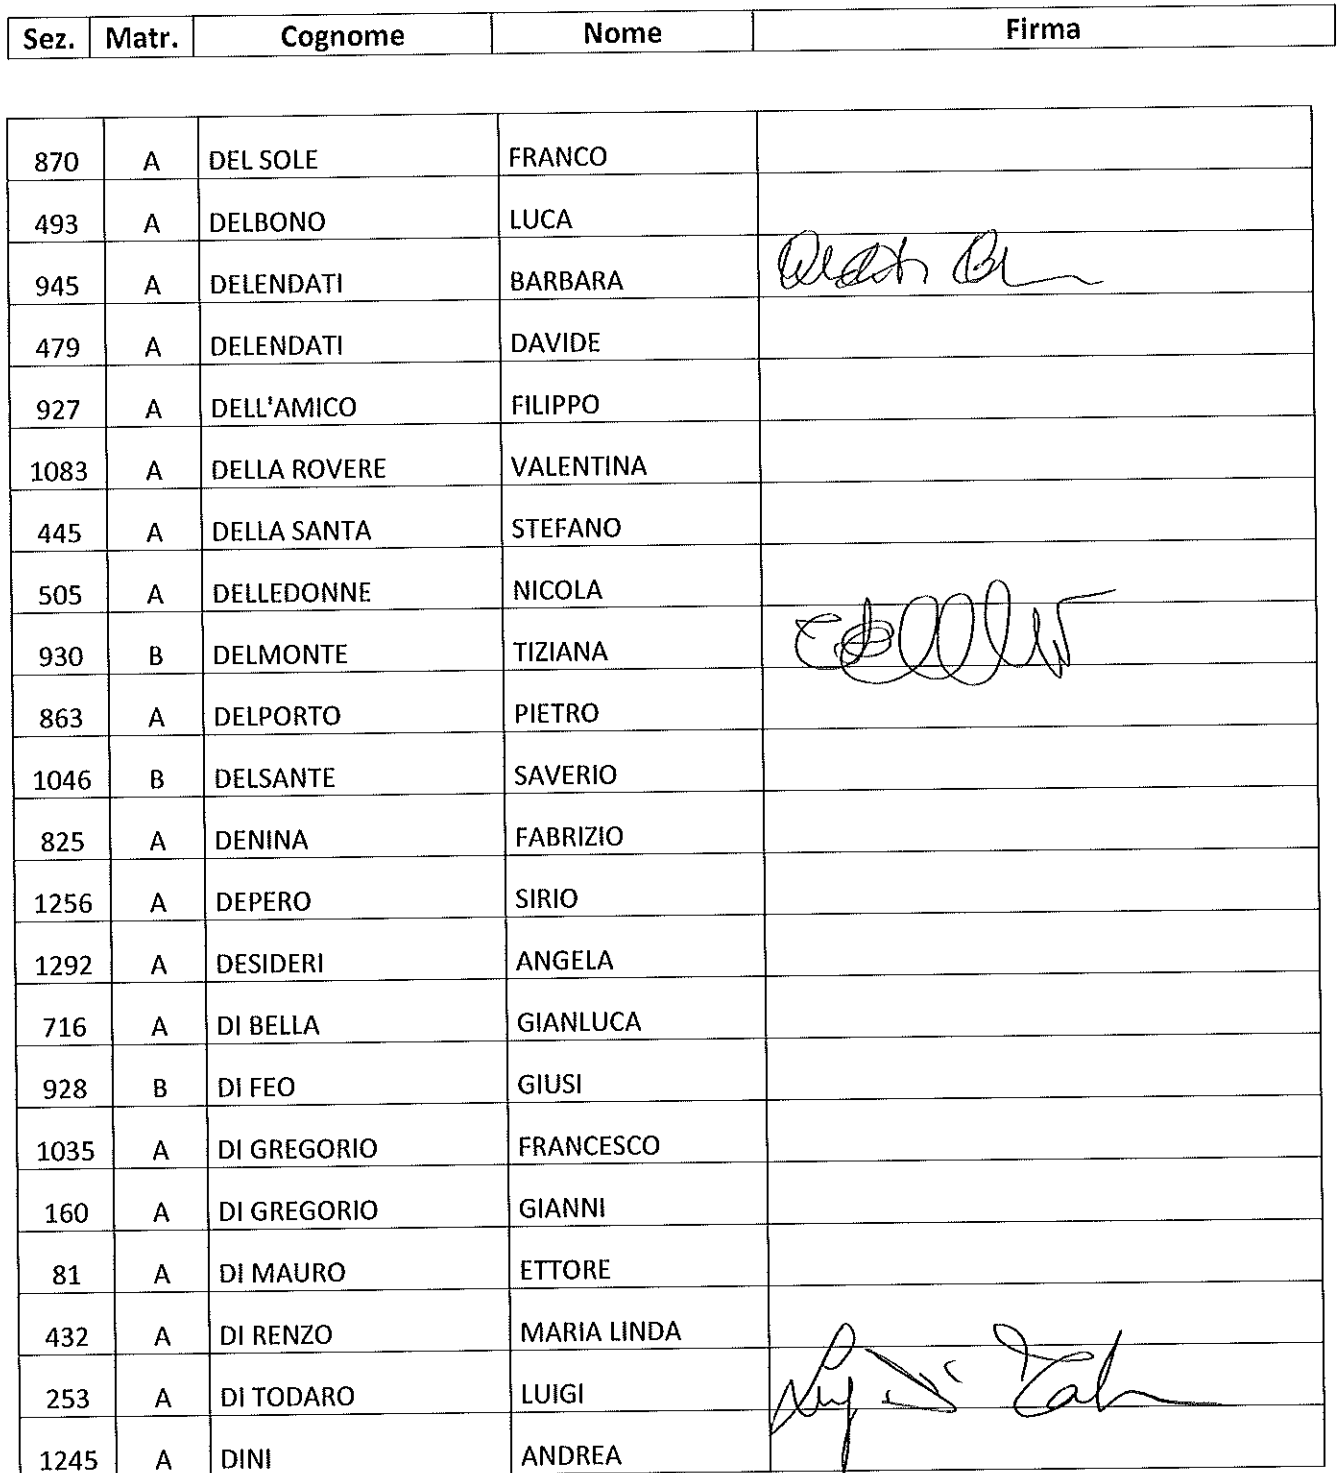 Sez. Matr. Cognome Nome Firma
870 A DEL SOLE FRANCO
493 A DELBONO LUCA
945 A DELENDATI BARBARA
479 A DELENDATI DAVIDE
927 A DELL'AMICO FILIPPO
1083 A DELLA ROVERE VALENTINA
445 A DELLA SANTA STEFANO
505 A DELLEDONNE NICOLA
930 B DELMONTE TIZIANA
863 A DELPORTO PIETRO
1046 B DELSANTE SAVERIO
825 A DENINA FABRIZIO
1256 A DEPERO SIRIO
1292 A DESIDERI ANGELA
716 A DI BELLA GIANLUCA
928 B DI FEO GIUSI
1035 A DI GREGORIO FRANCESCO
160 A DI GREGORIO GIANNI
81 A DI MAURO ETTORE
432 A DI RENZO MARIA LINDA
253 A DI TODARO LUIGI
1245 A DINI ANDREA